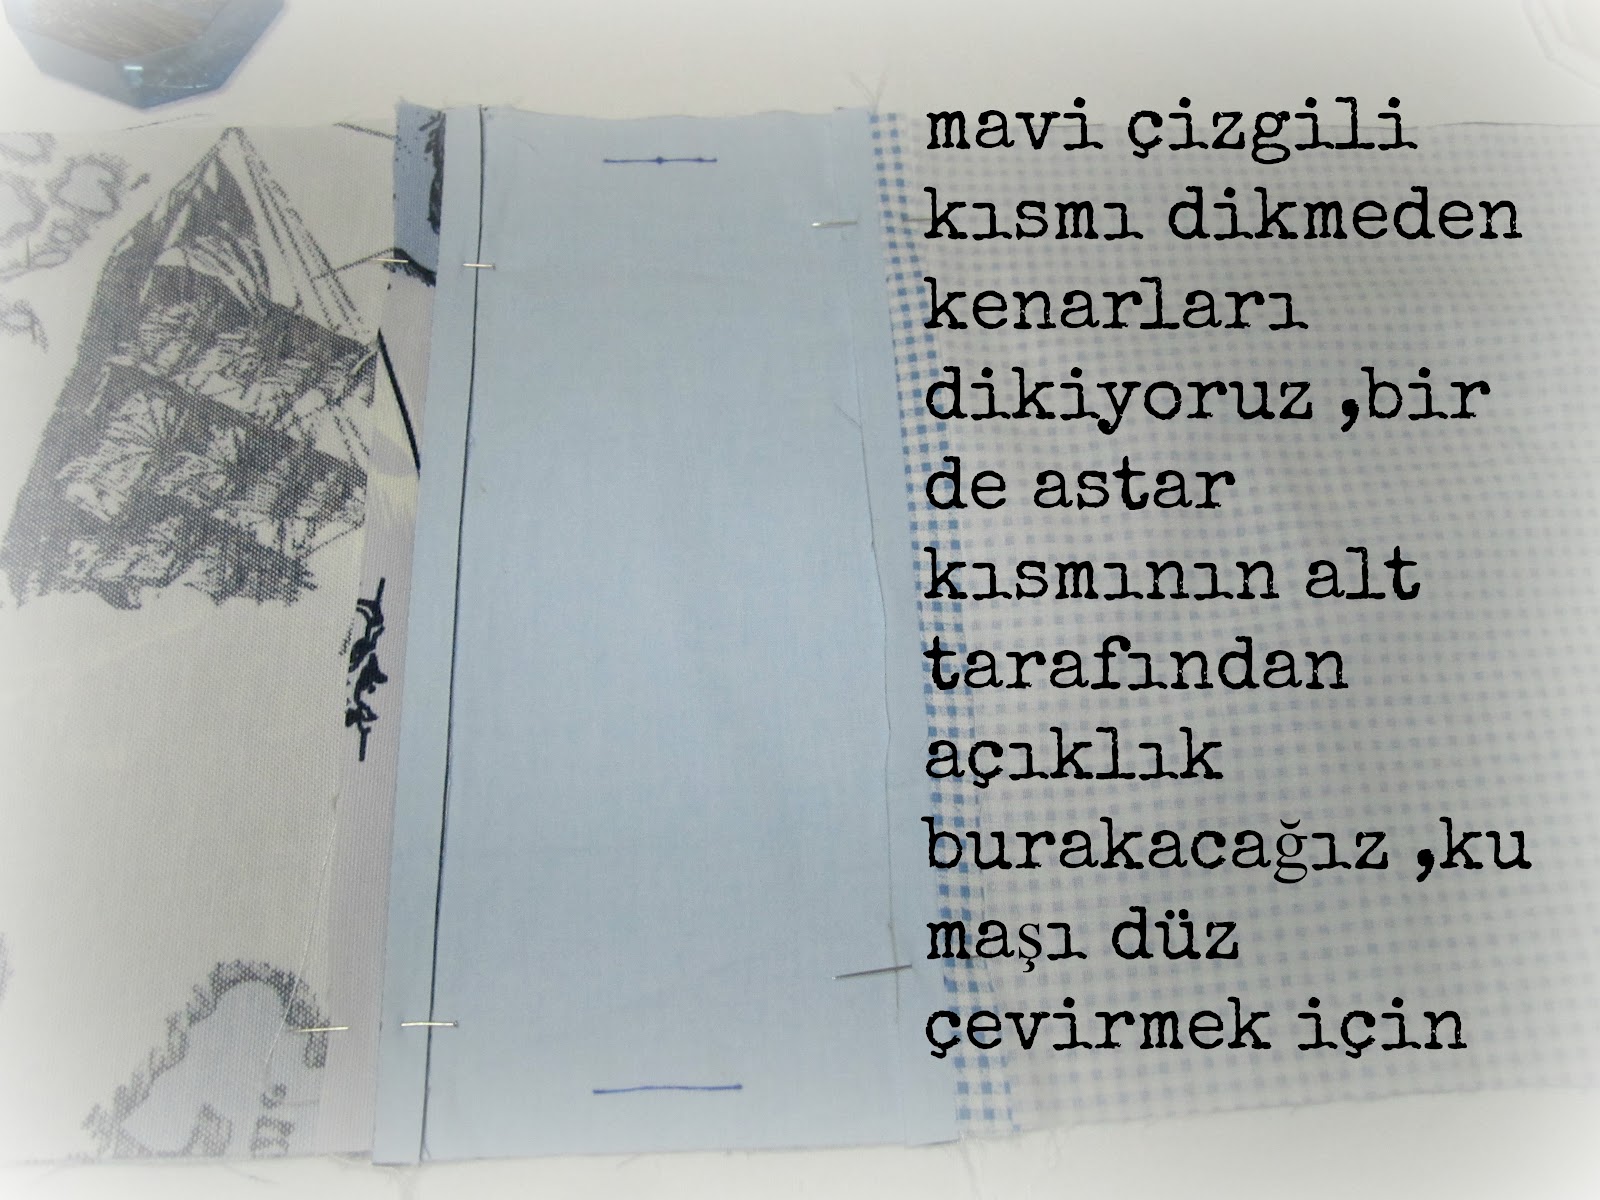 mavi çizgili
kısmı dikmeden
kenarları
dikiyoruz ,bir
de astar
kısmının alt
tarafından
açıklık
burakacağız ,ku
maşı düz
çevirmek için